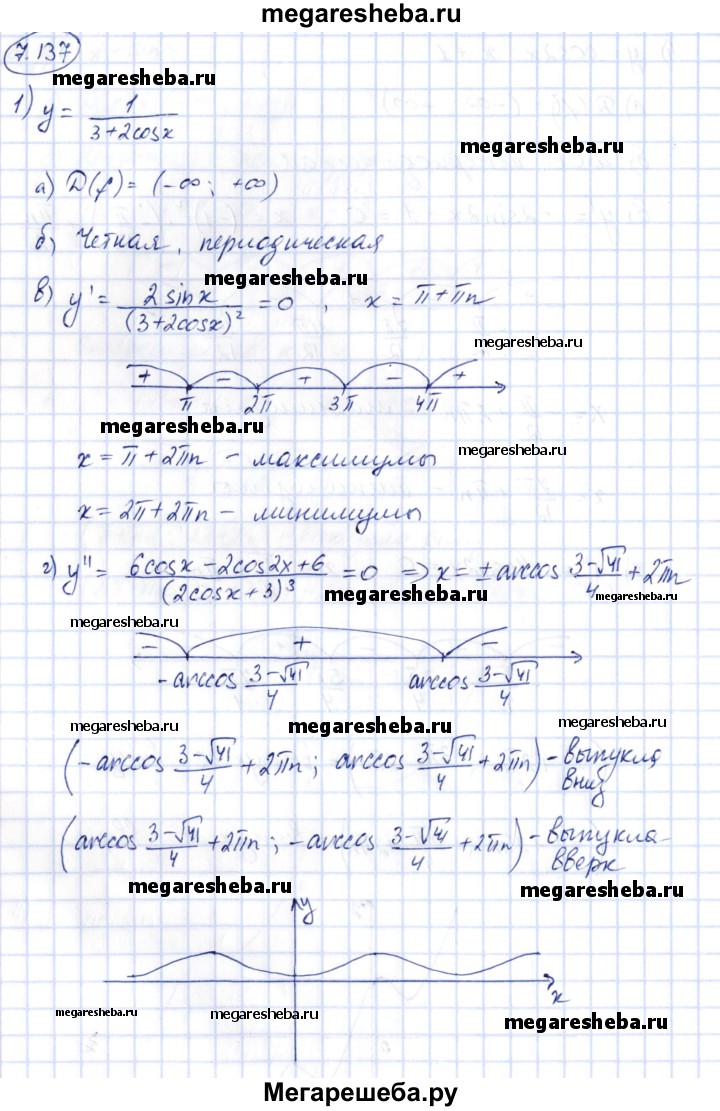 megaresheba.ru
7.137
megaresheba.ru
1) y = 1/(3+2cosx)
megaresheba.ru
а) D(f) = (-∞; +∞)
б) Четная, периодическая
megaresheba.ru
в) y' = 2sinx/(3+2cosx)² = 0 , x = π+πn
megaresheba.ru
+ - + - +
π 2π 3π 4π
megaresheba.ru
x = π + 2πn – максимумы
megaresheba.ru
x = 2π + 2πn – минимумы
г) y'' = (6cosx - 2cos2x + 6)/(2cosx+3)³ = 0 => x = ± arccos (3-√41)/4 + 2πn
megaresheba.ru
megaresheba.ru
megaresheba.ru
- + -
-arccos (3-√41)/4 arccos (3-√41)/4
megaresheba.ru
megaresheba.ru
megaresheba.ru
(-arccos (3-√41)/4 + 2πn ; arccos (3-√41)/4 + 2πn) – выпукла
вниз
(arccos (3-√41)/4 + 2πn ; -arccos (3-√41)/4 + 2πn) – выпукла
вверх
megaresheba.ru
megaresheba.ru
y
x
megaresheba.ru
megaresheba.ru
megaresheba.ru
Мегарешеба.ру